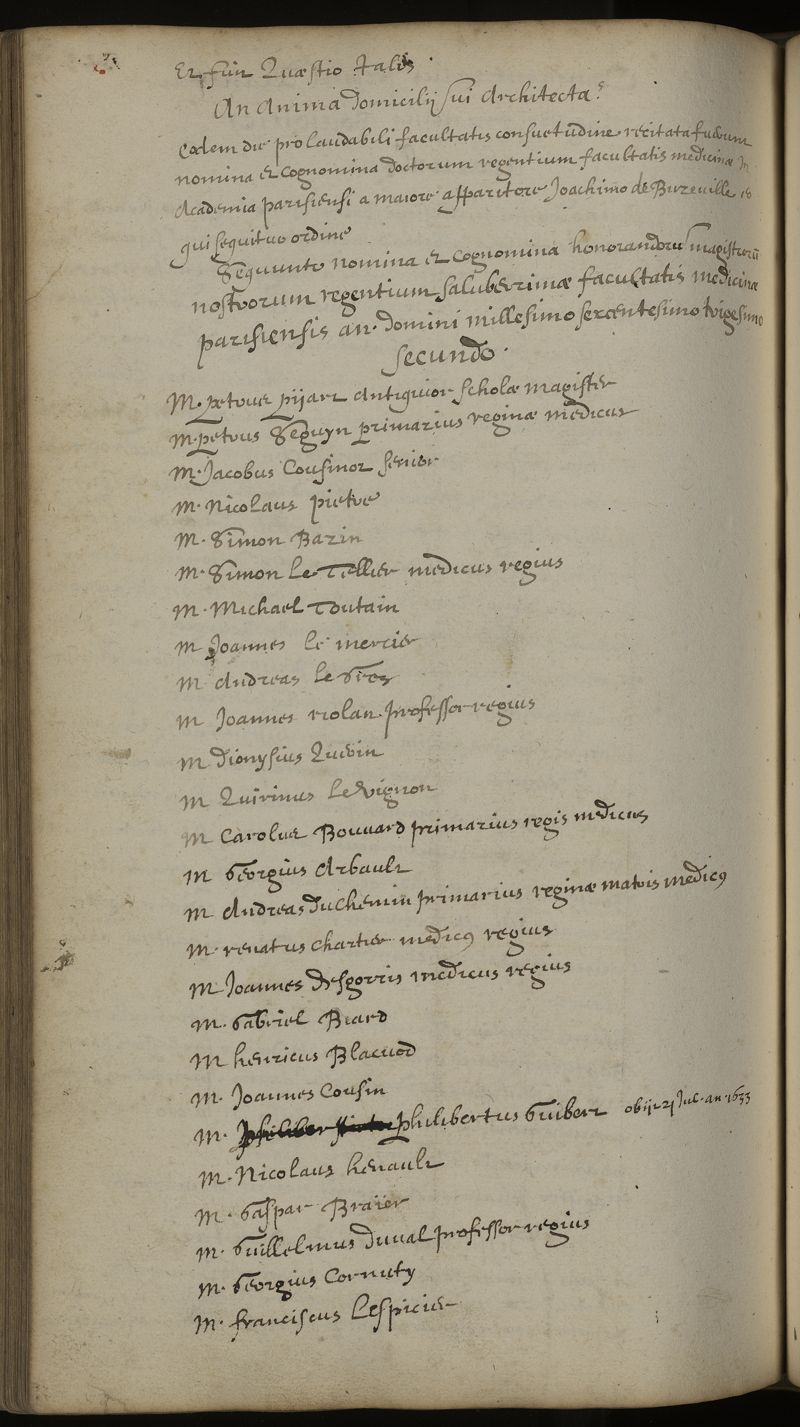 Et fuit Quæstio talis.
An Anima domicilij sui Architecta?
eodem die pro laudabili facultatis consuetudine recitata fuerunt
nomina et cognomina doctorum regentium facultatis medicinæ in
Academia parisiensi a maiore apparitore Joachimo de Buzeville eo
qui sequitur ordine
Sequuntr nomina et cognomina honorandorū magistrorū
nostrorum regentium saluberrimæ facultatis medicinæ
parisiensis an. domini millesimo sexcentesimo trigesimo
secundo.
M. petrus pijart Antiquior scholæ magister
M. petrus Seguyn primarius reginæ medicus
M. Jacobus Cousinot senior
M. Nicolaus pietre
M. Simon Bazin
M. Simon Le Tellier medicus regius
M. Michael Toutain
M Joannes le mercier
M Andreas le
M Joannes riolan professor regius
M dionysius Guerin
M Quirinus le vignon
M Carolus Bouuard primarius regis medicus
M Georgius Arbault
M Andreas du Chemin primarius reginæ matris medicus
M. renatus chartier medicus regius
M Joannes desgorris medicus regius
M. Gabriel Biard
M henricus Blacuod
M. Joannes Cousin
M. philibertus Guibert obijt 21 Jul. an. 1633
M. Nicolaus henault
M. Gaspar Brayer
M. Guillelmus duual professor regius
M. Georgius Cornuty
M. franciscus Lespicier